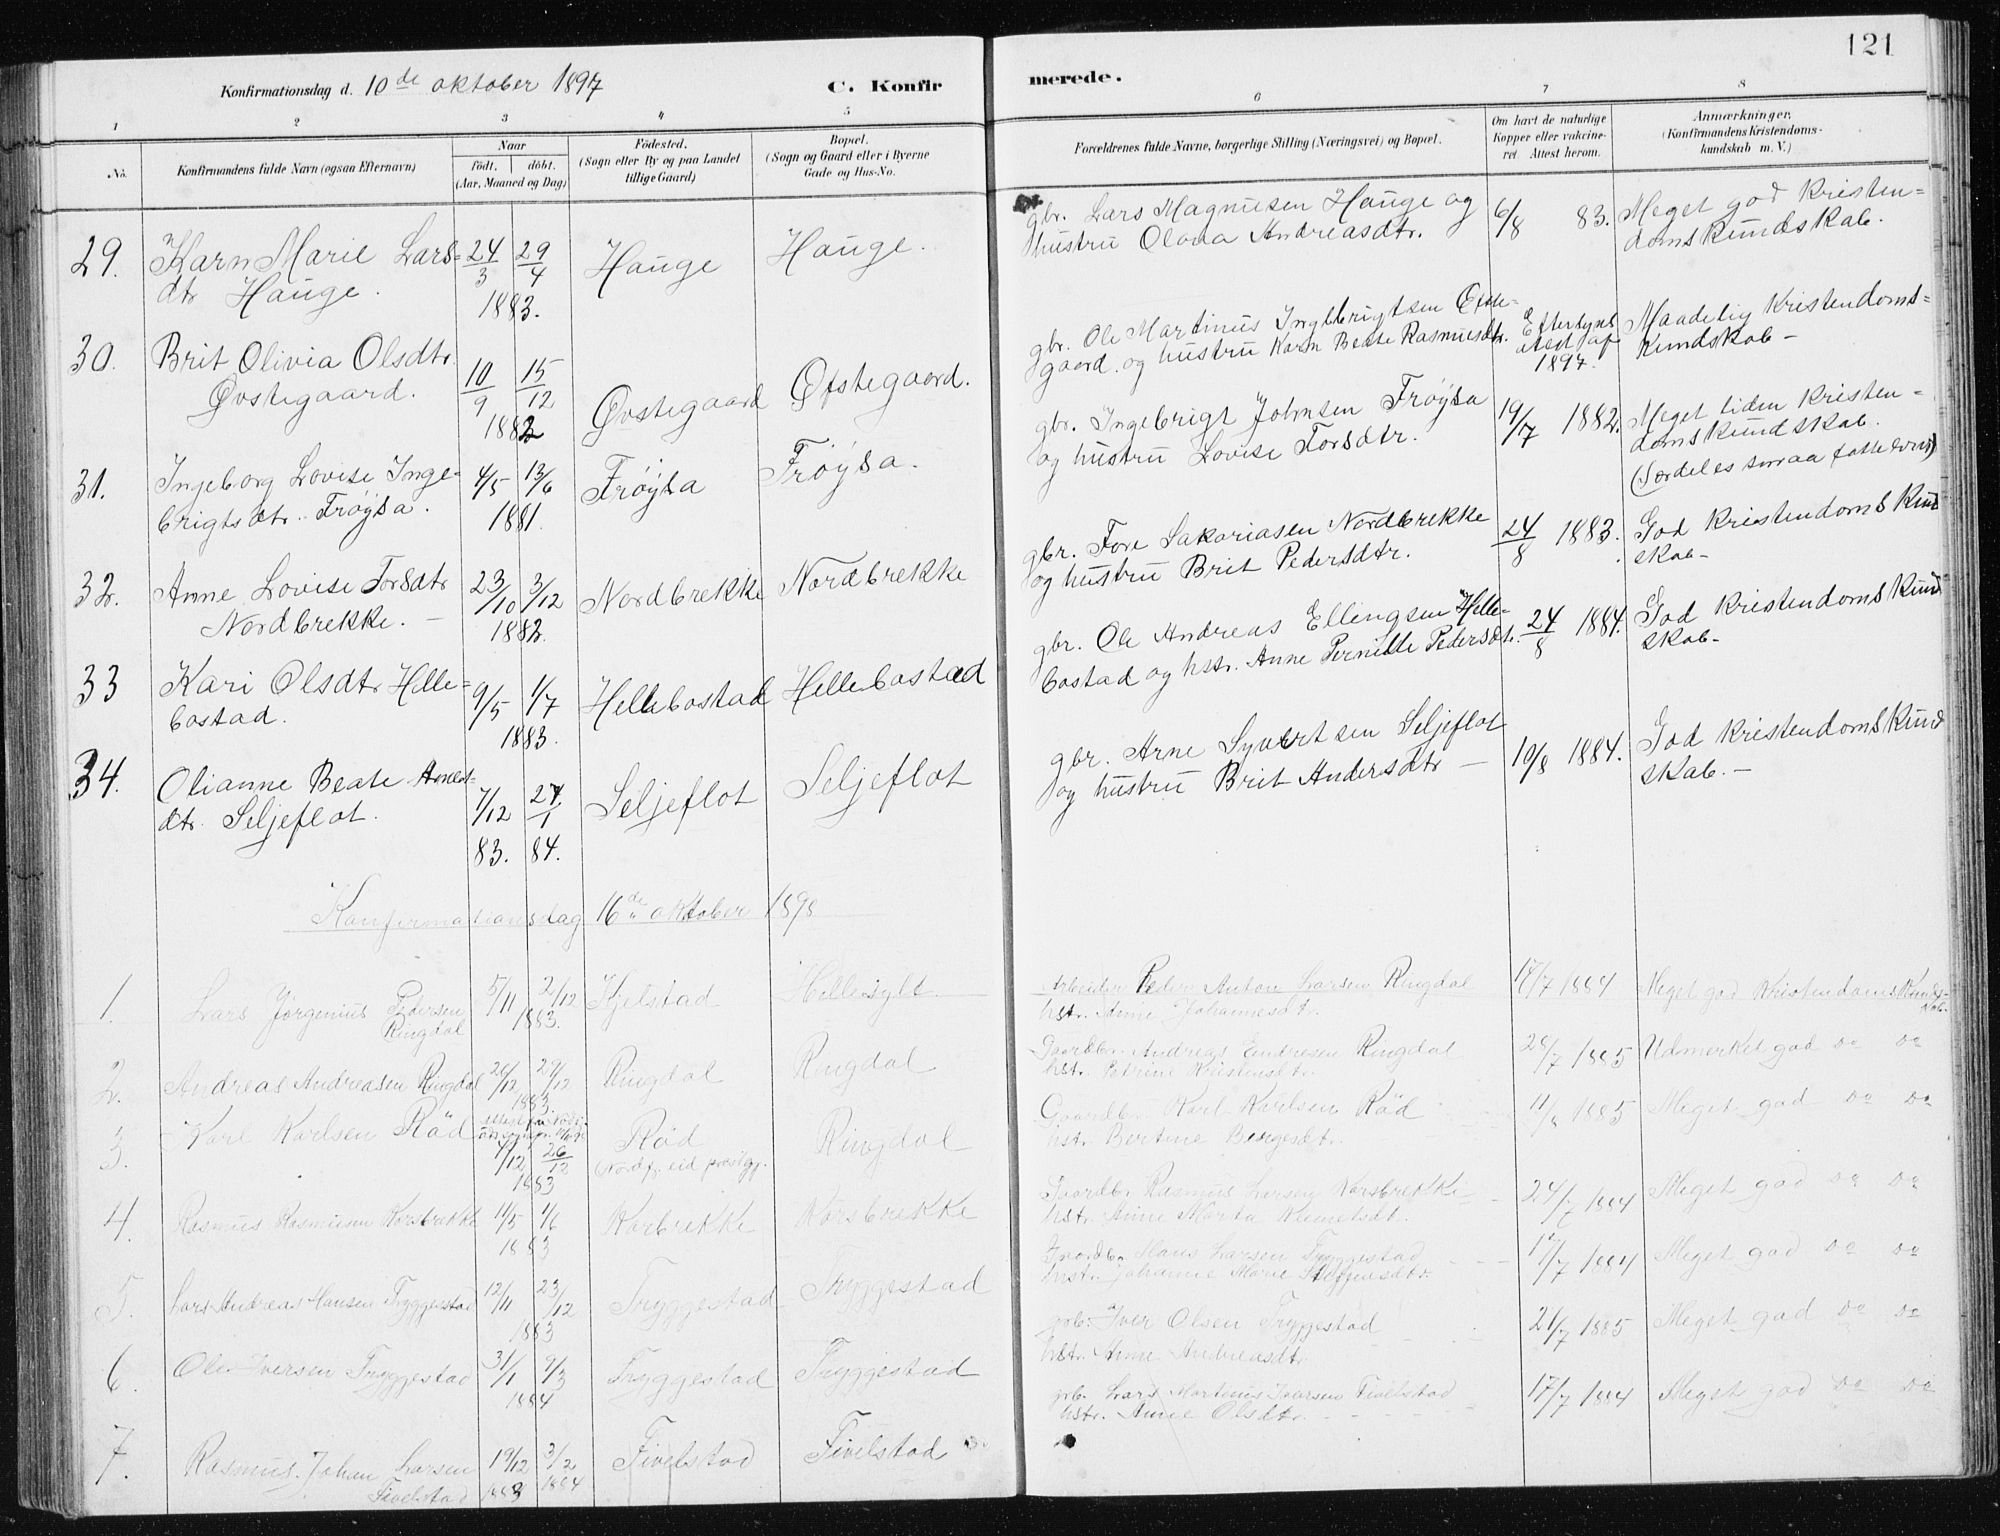 121
Konfirmationsdag d. 10de oktober 1897
C. Konfirmerede.
1 2 3 4 5 6 7 8
No.
Konfirmandens fulde Navn (ogsaa Efternavn)
Naar
født. døbt.
(Aar, Maaned og Dag)
Fødested.
(Sogn eller By og paa Landet
tillige Gaard)
Bopæl.
(Sogn og Gaard eller i Byerne
Gade og Hus-No.
Forældrenes fulde Navne, borgerlige Stilling (Næringsvei) og Bopæl.
Om havt de naturlige
Kopper eller vakcine-
ret. Attest herom.
Anmærkninger.
(Konfirmandens Kristendoms-
kundskab m. V.)
29. Karn Marie Lars-
dtr Hauge.
24/3 29/4
1883.
Hauge
Hauge.
gbr. Lars Magnusen Hauge og
hustru Olava Andreasdtr.
6/8 83.
Meget god Kristen-
domskundskab.
30. Brit Olivia Olsdtr
Øvstegaard.
10/9 15/12
1882
Øvstegaard
Øfstegaard.
gbr. Ole Martinus Ingebrigtsen Øfste-
gaard. og hustru Karn Beate Rasmusdtr.
Efterlyst
attest af
1897.
Maadelig Kristendoms-
kundskab -
31. Ingeborg Lovise Inge-
brigtsdtr. Frøysa.
4/5 13/6
1881.
Frøysa
Frøysa.
gbr. Ingebrigt Johnsen Frøysa
og hustru Lovise Torsdtr.
19/7 1882.
Meget liden Kristen-
domskundskab.
(Særdeles smaa fatteevner)
32. Anne Lovise Torsdtr
Nordbrekke. -
23/10 3/12
1882.
Nordbrekke
Nordbrekke
gbr. Tore Sakariasen Nordbrekke
og hustru Brit Pedersdtr.
24/8 1883.
God Kristendomskund
skab -
33 Kari Olsdtr Helle-
bostad.
9/5 1/7
1883.
Hellebostad
Hellebostad
gbr. Ole Andreas Ellingsen Helle-
bostad og hstr. Anne Pernille Pedersdt.
24/8 1884.
God Kristendomskund
skab -
34. Olianne Beate Arnes-
dtr. Seljeflot.
7/12 27/1
83. 84.
Seljeflot
Seljeflot
gbr. Arne Syvertsen Seljeflot
og hustru Brit Andersdtr -
19/8 1884.
God Kristendomskund
skab. -
Konfirmationsdag 16de oktober 1898
1. Lars Jørgenius Pedersen
Ringdal
5/11 2/12
1883.
Kjelstad
Hellesylt
Arbeider Peder Anton Larsen Ringdal
hstr. Anne Johannesdt.
17/7 1884
Meget god Kristendomskunds-
kab.
2. Andreas Andreasen Ringdal
26/12 29/12
1883
Ringdal
Ringdal
Gaardbr. Andreas Endresen Ringdal
hst. Petrine Kristensdt.
28/7 1885
Udmerket god do do
3. Karl Karlsen Rød
7/12 26/12
1883
Rød
(Nordfj. eid prestgj.
Ringdal
Gaardbr. Karl Karlsen Rød
hst. Bertine Børgesdt.
11/8 1885
Meget god do do
4. Rasmus Rasmusen Korsbrekke
11/5 1/6
1883
Korbrekke
Korsbrekke
Gaardbr. Rasmus Larsen Korsbrekke
hstr. Anne Marta Klemetsdt.
24/7 1884
Meget god do do
5. Lars Andreas Hansen Tryggestad
12/11 23/12
1883
Tryggestad
Tryggestad
Gaardb. Hans Larsen Tryggestad
hustr. Johanne Marie Steffensdtr.
17/7 1884
Meget god do do
6. Ole Iversen Tryggestad
31/1 9/3
1884
Tryggestad
Tryggestad
grb. Iver Olsen Tryggestad
hstr. Anne Andreasdtr
21/7 1885
Meget god do do
7. Rasmus Johan Larsen
Fivelstad
19/12 3/2
1883 1884
Fivelstad
Fivelstad
grb. Lars Martinus Iversen Fivelstad
hstr. Anne Olsdtr.
17/7 1884
Meget god do do